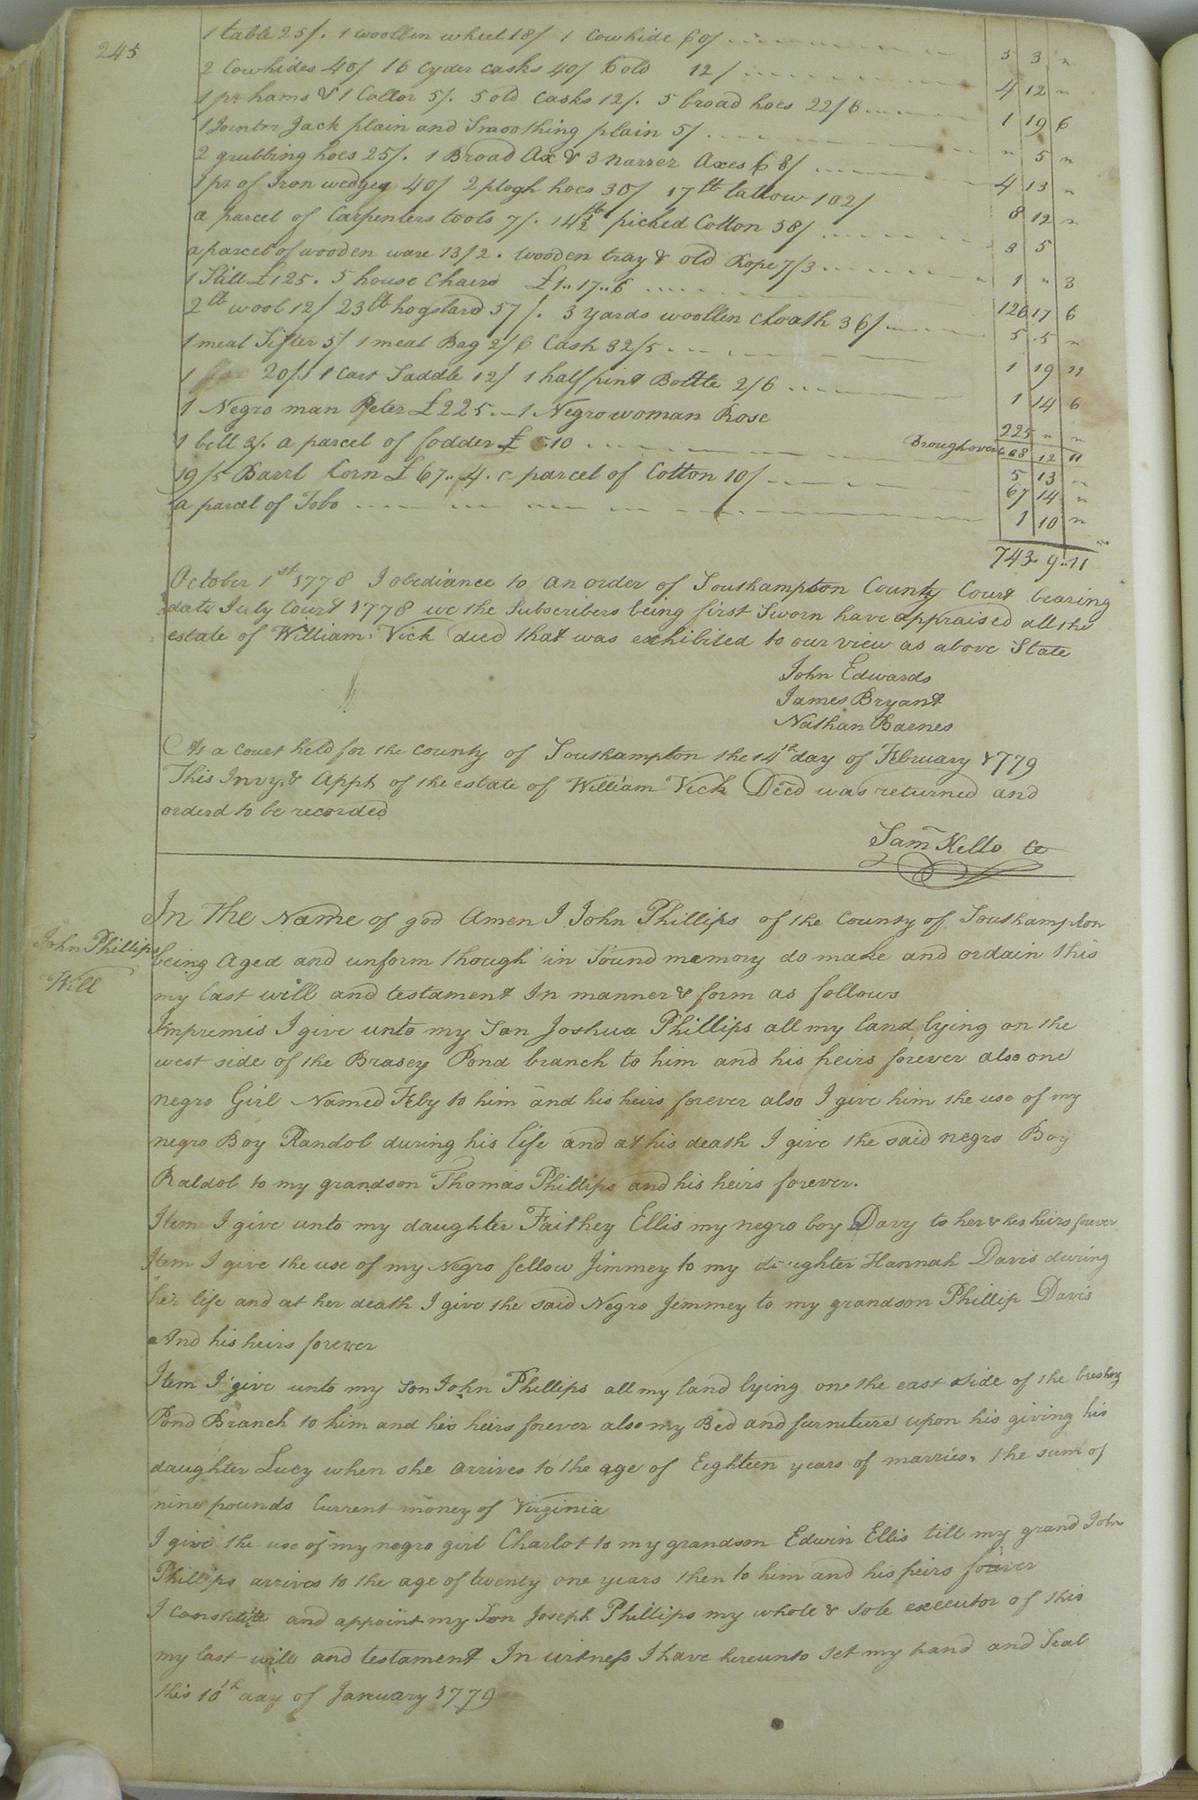 245
1 table 25/. 1 woollen wheel 18/ 1 Cowhide 60/ 5 3 "
2 Cowhides 40/ 16 Cyder casks 40/ 6 old 12/ 4 12 "
1 pr hams & 1 Collor 5/. 5 old Casks 12/. 5 broad hoes 22/6 1 19 6
1 Jointer Jack plain and Smoothing plain 5/. " 5 "
2 grubbing hoes 25/. 1 Broad Ax & 3 narrer Axes 68/ 4 13 "
1 pr of Iron wedges 40/ 2 plogh hoes 30/ 17lb tallow 102/ 8 12 "
a parcel of Carpenters tools 7/. 14½ lb picked Cotton 58/ 3 5
a parcel of wooden ware 13/2. wooden tray & old Rope 7/3 1 " 3
1 Still £125. 5 house Chairs £1..17..6 126 17 6
2lb wool 12/ 23lb hogslard 57/. 3 yards woollen cloath 36/ 5 5 "
1 meal Sifter 5/ 1 meal Bag 2/6 Cash 32/5 1 19 11
1 20/. 1 Cart Saddle 12/ 1 half pint Bottle 2/6 1 14 6
1 Negro man Peter £225 1 Negro woman Rose 225 " "
1 bell 3/. a parcel of fodder £ 5.10 Brought over 668 12 11
19/5 Barrl Corn £67..4. a parcel of Cotton 10/ 5 13 "
a parcel of Tobo 67 14 "
1 10 "
743 9..11
October 1st 1778 I obediance to an order of Southampton County Court bearing
date July Court 1778 we the Subscribers being first Sworn have appraised all the
estate of William Vick decd that was exhibited to our view as above State
John Edwards
James Bryant
Nathan Barnes
At a court held for the county of Southampton the 14th day of February 1779
This Invy & Appt of the estate of William Vick Decd was returned and
orderd to be recorded
Sam Kello Cc
John Phillips
Will
In The Name of god Amen I John Phillips of the County of Southampton
being Aged and unform though in Sound memory do make and ordain this
my last will and testament In manner & form as follows
Impremis I give unto my Son Joshua Phillips all my land lying on the
west side of the Brasey Pond branch to him and his heirs forever also one
negro Girl Named Feby to him and his heirs forever also I give him the use of my
negro Boy Randol during his life and at his death I give the said negro Boy
Raldol to my grandson Thomas Phillips and his heirs forever.
Item I give unto my daughter Faithey Ellis my negro boy Davy to her & her heirs forever
Item I give the use of my Negro fellow Jimmey to my daughter Hannah Davis during
her life and at her death I give the said Negro Jemmey to my grandson Phillip Davis
And his heirs forever
Item I give unto my Son John Phillips all my land lying on the east side of the breshey
Pond Branch to him and his heirs forever also my Bed and furniture upon his giving his
daughter Lucy when she arrives to the age of Eighteen years of marries, the sum of
nine pounds Current money of Virginia
I give the use of my negro girl Charlot to my grandson Edwin Ellis till my grand John
Phillips arrives to the age of twenty one years then to him and his heirs forever
I constitute and appoint my Son Joseph Phillips my whole & sole executor of this
my last will and testament In witness I have hereunto set my hand and Seal
this 10th day of January 1779